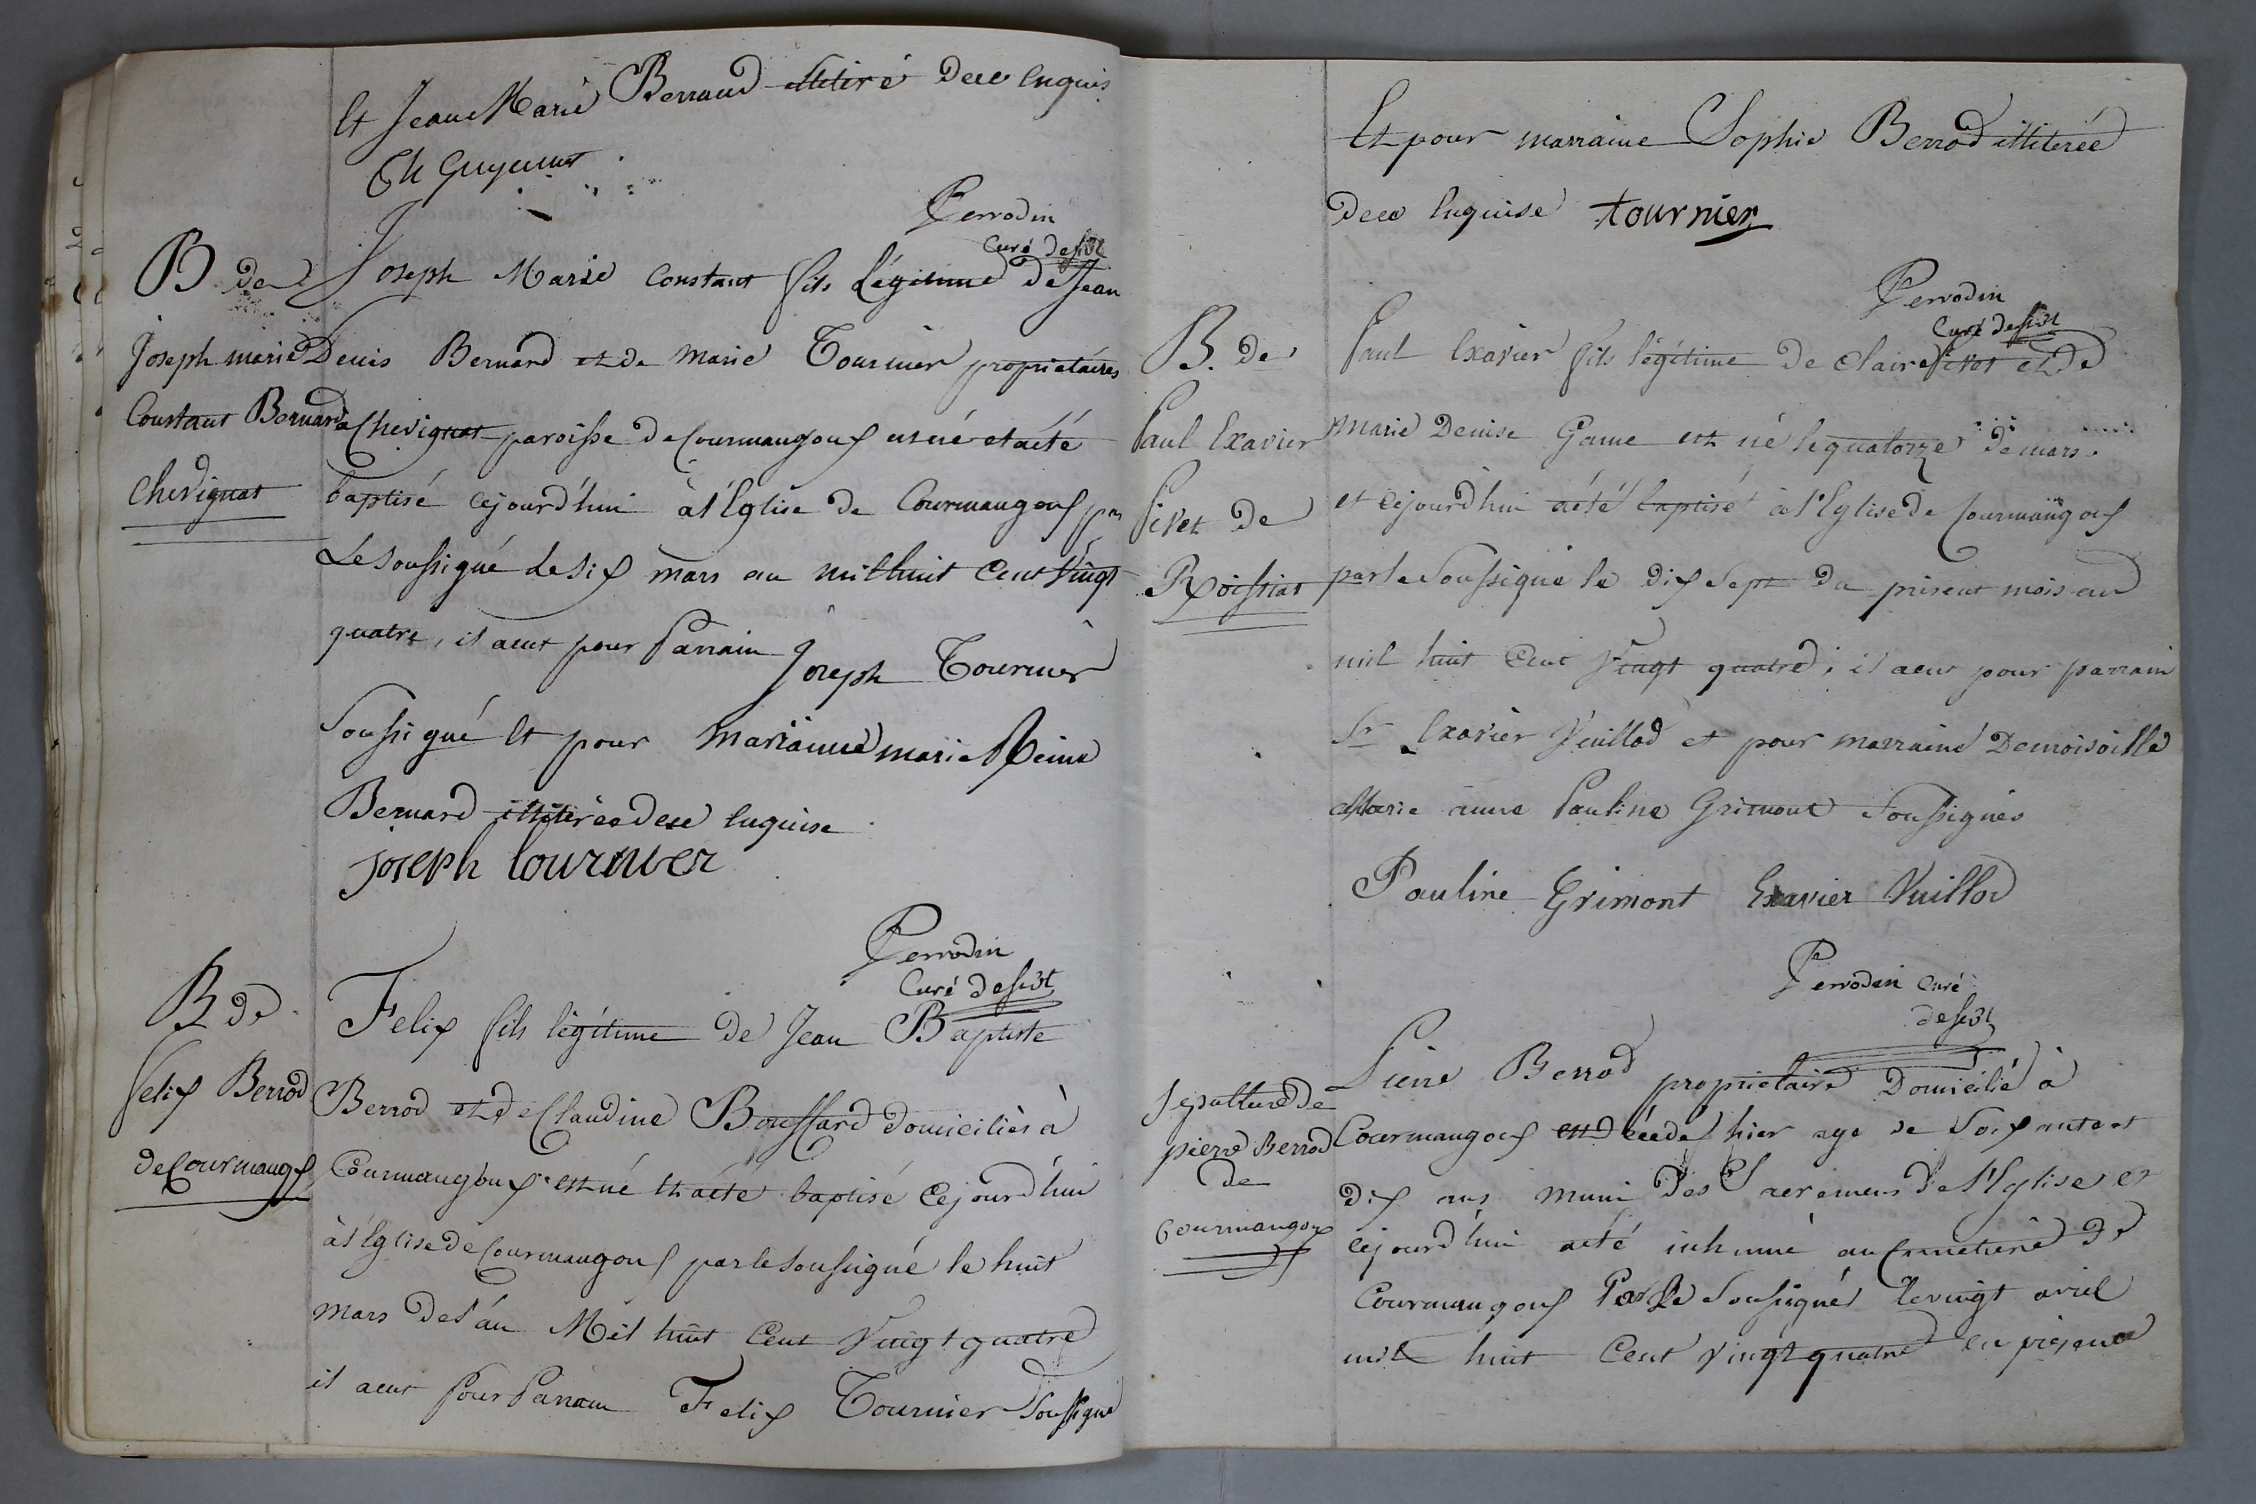 Et Jean Marie Bernard illitiré dece enquis
Ch Guyennet
Perrodin
Curé desst
B de
Joseph marie
Constant Bernard
Chevignat
Joseph Marie Constant fils légitime de Jean
Denis Bernard et de Marie Tournier propriétaires
a Chevignat paroisse de Courmangoux est né et a été
baptisé cejourd'hui à l'Eglise de Courmangoux par
Le soussigné le six mars an mil huit cent vingt
quatre, il a eut pour Parrain Joseph Tournier
Soussigné et pour marrainne marie Reine
Bernard illitirée dece enquise
joseph tournier
Perrodin
Curé desst
B de
Felix Berrod
de Courmangx
Felix fils légitime de Jean Baptiste
Berrod et de Claudine Bouffard domiciliés à
Courmangoux est né et a été baptisé Cejourd'hui
à l'Eglise de Courmangoux par le soussigné le huit
mars de l'an Mil huit Cent Vingt quatre
il a eut pour Parrain Felix Tournier soussigné
Et pour marraine Sophie Berrod illiterée
dece enquise tournier
Perrodin
Curé desst
B. de
Paul Exavier
Pivet de
Roissiat
Paul Exavier fils légitime de Claire Pivet et de
marie Denise Game est né le quatorze de mars
et cejourd'hui a été baptisé à l'Eglise de Courmangoux
par le Soussigné le dix sept du présent mois an
mil huit Cent Vingt quatre; il a eut pour parrain
Sr Exavier Vuillod et pour marraine Demoisoille
Marie anne Pauline Grimont Soussignés
Pauline Grimont Exavier Vuillod
Perrodin Curé
desst
Sepulture de
pierre Berrod
de
Courmangoux
Pierre Berrod propriétaire Domicilié à
Courmangoux est décédé hier age de Soixante et
dix ans muni des Sacremens de l'Eglise et
cejourd'hui a été inhumé au Cimetiere de
Courmangoux Par Le Soussigné le vingt avril
mil huit Cent vingt quatre en présence